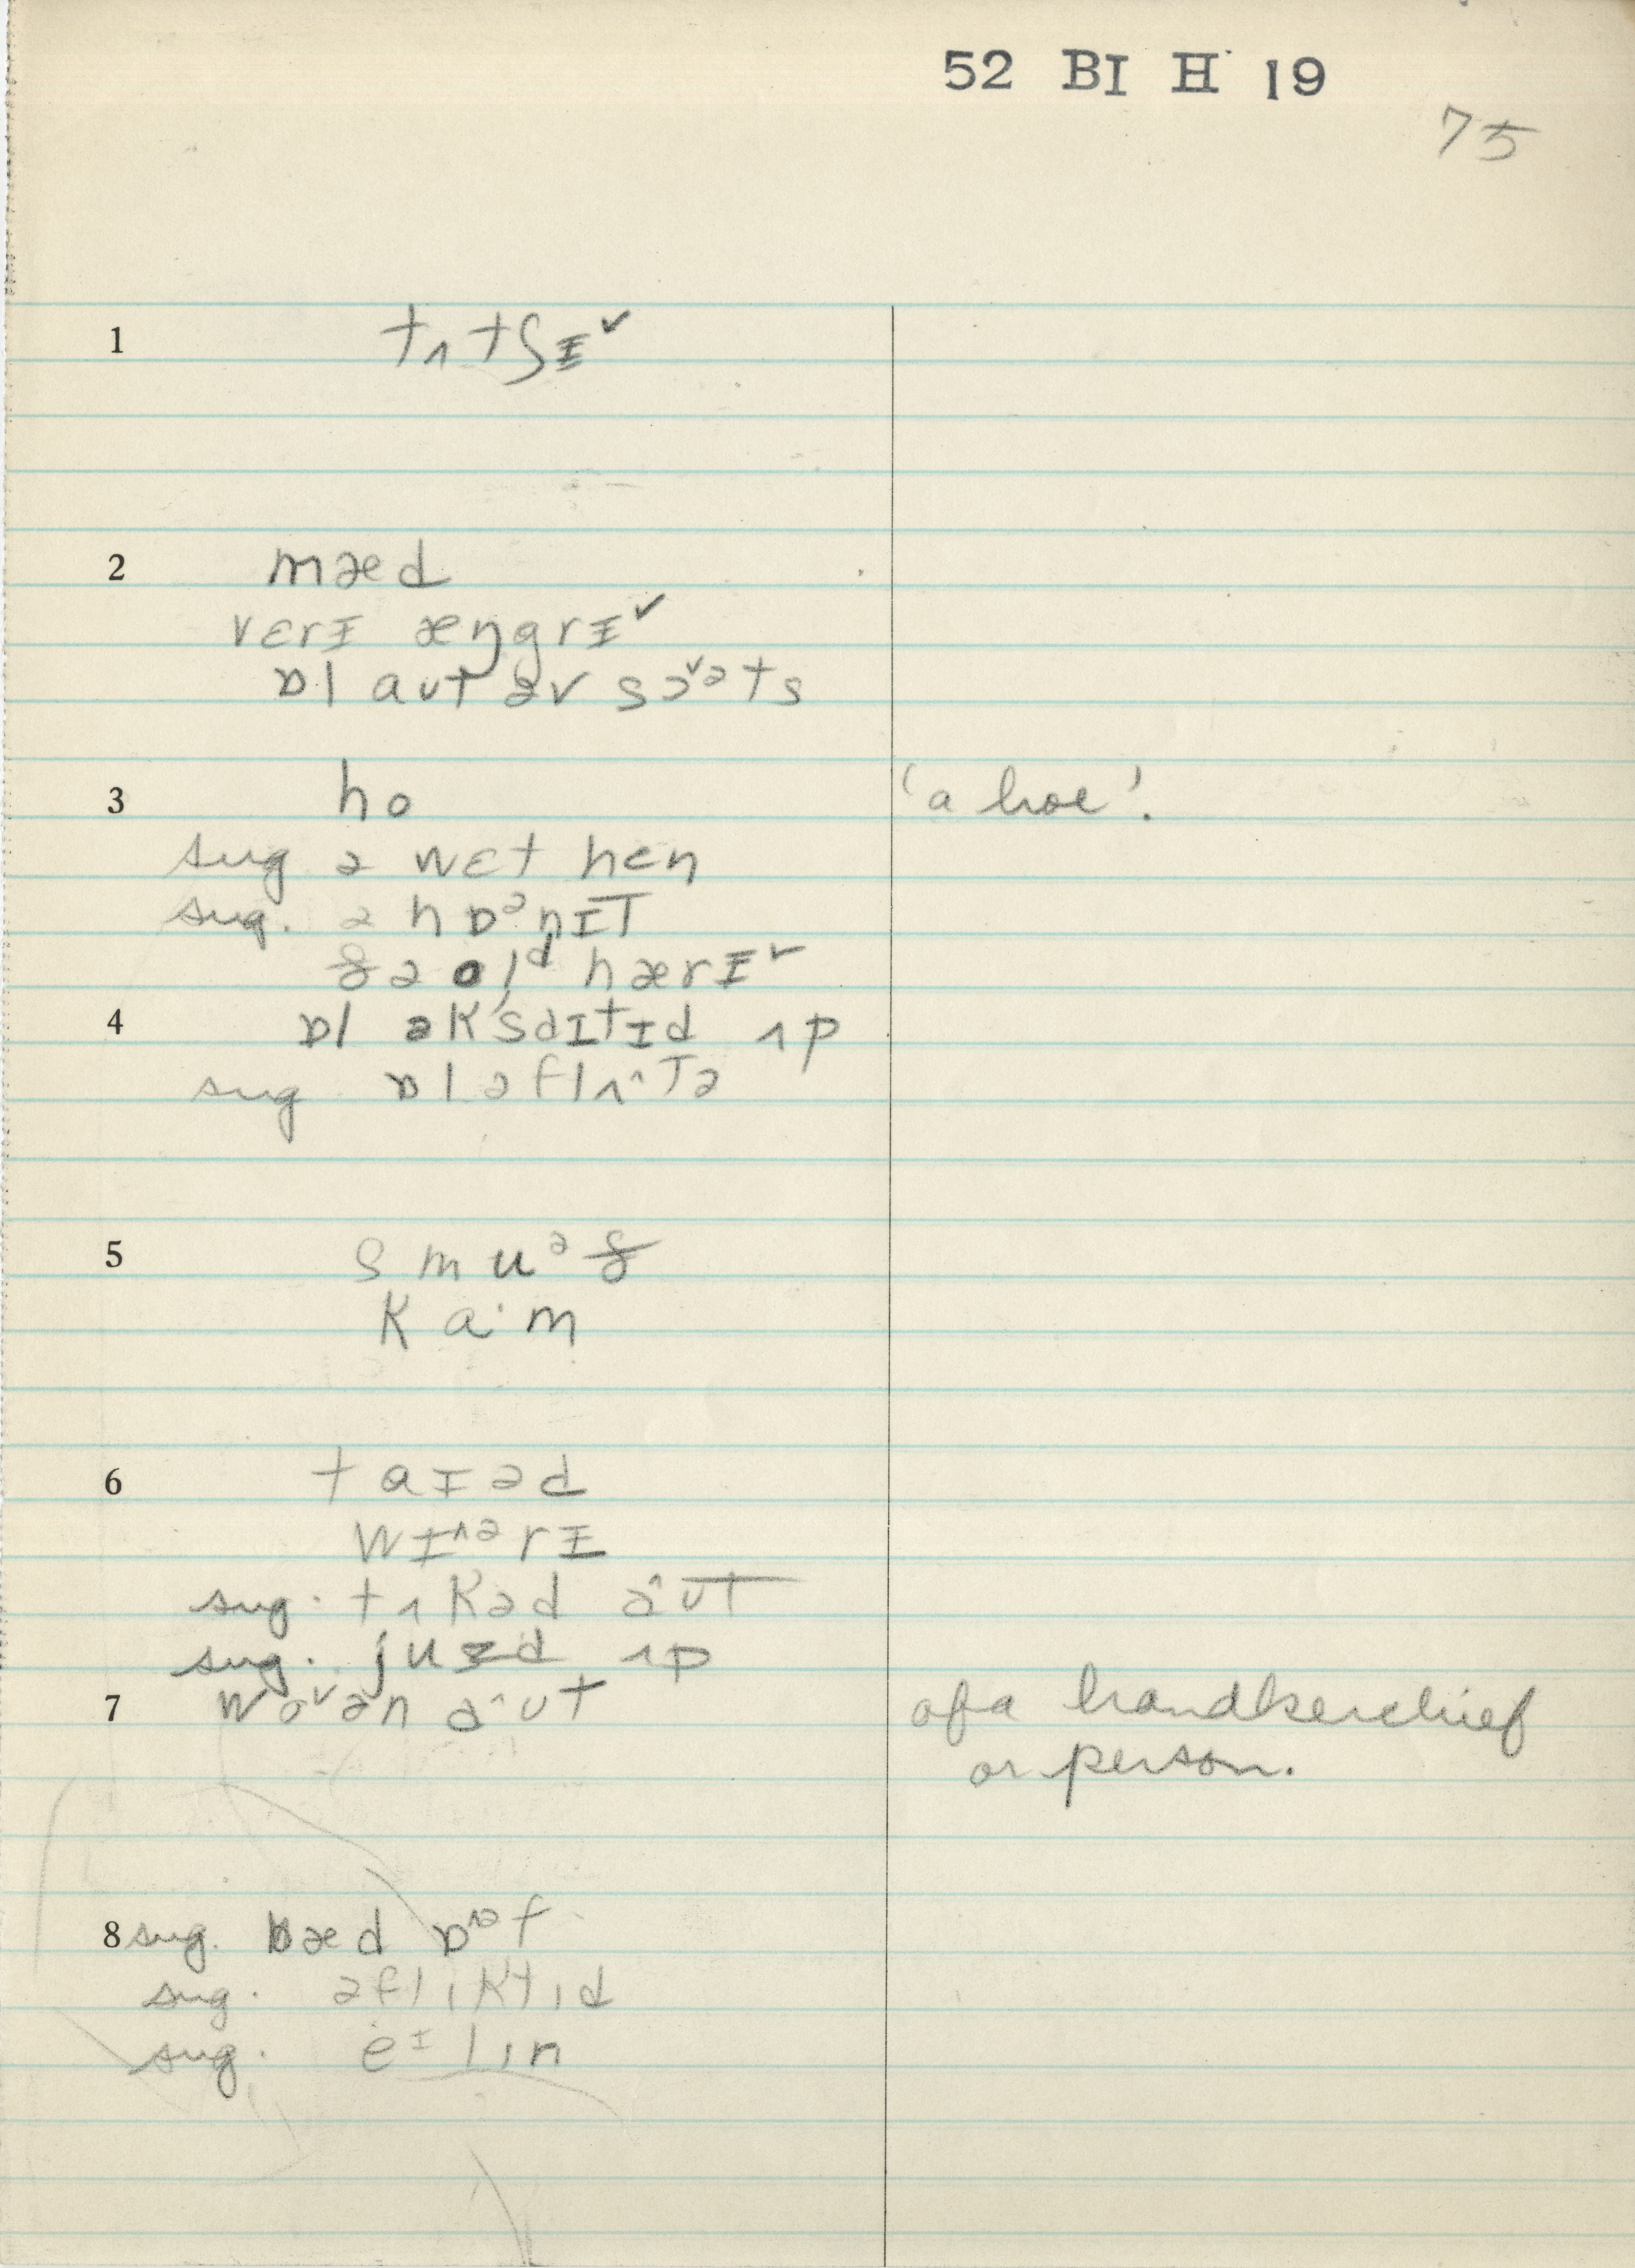 52 BI H 19
75
1 tʌtʃɪ˅
2 mæd
vɛrɪ æŋgrɪ˅
ɒl aʊt əv sɔ˅əts
3 ho 'a hoe'.
sug ə wɛt hɛn
sug. ə hɒᵊnɪt
ðə olᵈ hærɪ˅
4 ɒl əkˈsaɪtɪd ʌp
sug ɒl əflʌ^tə
5 smuᵊð
ka·m
6 taɪəd
wɪ^ᵊrɪ
sug. tʌkəd a^ʊt
sug. juzd ʌp
7 wo˅ən a^ʊt of a handkerchief
or person.
8 sug. bæd ɒ^ᵊf
sug. əflıktıd
sug. eᶦlın